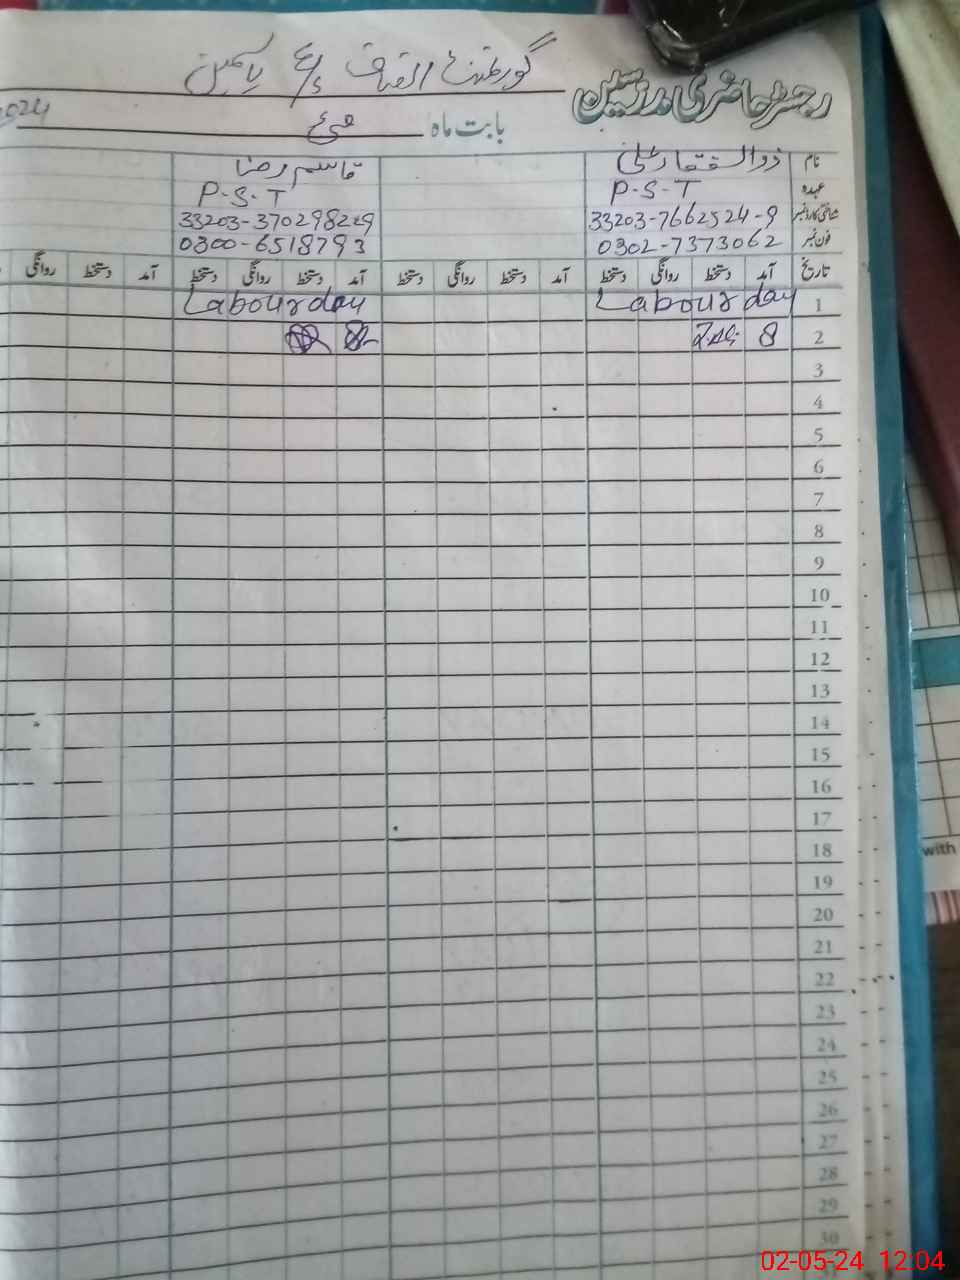 رجسٹر حاضری مدرسین
گورنمنٹ الف E/S یاسمین
بابت ماہ مئی 2024
نام ذوالفقار علی قاسم رضا
عہدہ P.S.T P.S.T
شناختی کارڈ نمبر 33203-7662524-9
فون نمبر 0302-7373062 0300-6518793
تاریخ آمد دستخط روانگی دستخط آمد دستخط روانگی دستخط آمد دستخط روانگی دستخط آمد دستخط روانگی
1 Labour day Labour day
2 8 8
3
4
5
6
7
8
9
10
11
12
13
14
15
16
17
18
19
20
21
22
23
24
25
26
27
28
29
30
with
02-05-24 12:04